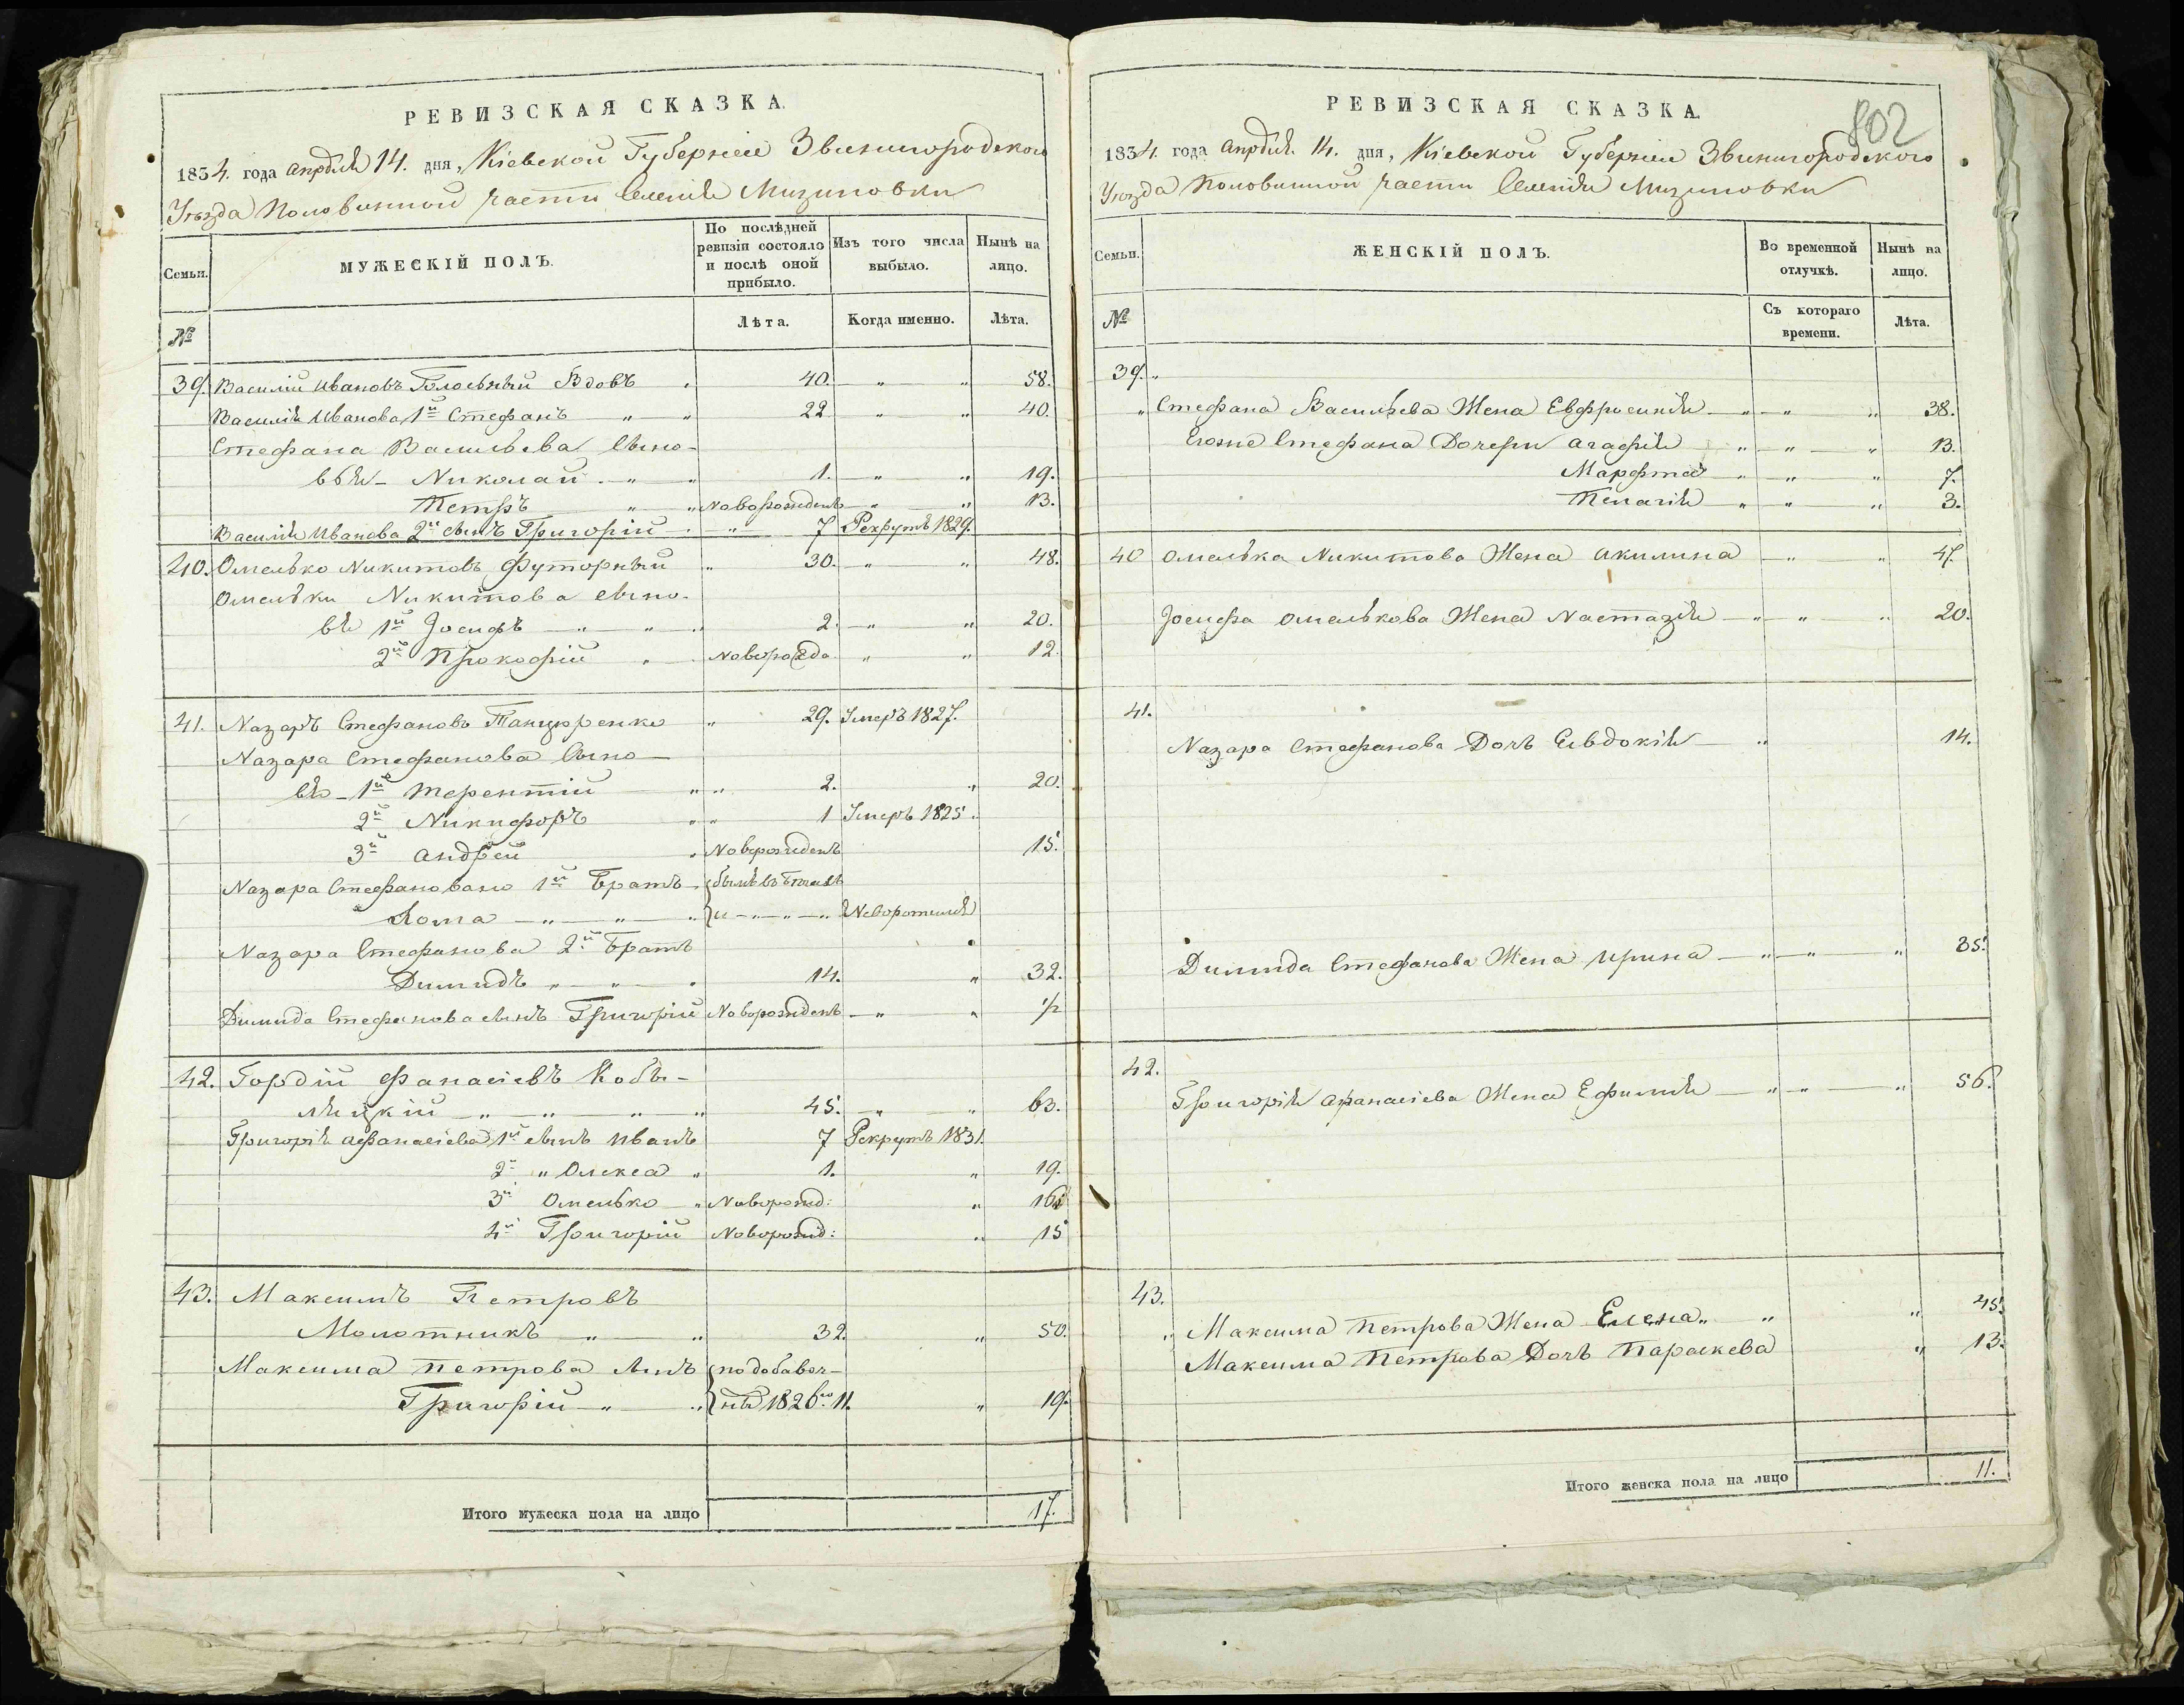 РЕВИЗСКАЯ СКАЗКА.
1834. года апреля 14. дня, Кіевской Губерніи Звенигородского
Уѣзда Половинной части Селенія Мизиновки
Семьи.
МУЖЕСКІЙ ПОЛЪ.
По послѣдней ревизіи состояло и послѣ оной прибыло.
Изъ того числа выбыло.
Нынѣ на лицо.
№
Лѣта.
Когда именно.
Лѣта.
39. Василій Ивановъ Вдовъ 40. " " 58.
Василія Иванова 1й Стефанъ " " 22 " " 40.
Стефана Васильева сыно-
вья Николай " " 1. " " 19.
Петръ " " Новорожденъ " " 13.
Василія Иванова 2й сынъ Григорій " 7 Рекрутъ 1829.
40. Омелько Никитовъ Футорный " 30. " " 48.
Омелька Никитова сыно-
вя 1й Іосифъ " " 2. " " 20.
2й Прокофій " Новорожде " " 12.
41. Назаръ Стефановъ Танцюренко " 29. Умеръ 1827.
Назара Стефанова сыно-
вя 1й Терентій " " 2. " 20.
2й Никифоръ " " 1 Умеръ 1825.
3й Андрей " Новорожденъ 15.
Назара Стефанова 1й Братъ былъ въ бегахъ
Хома " " и " " Неворотился
Назара Стефанова 2й Братъ
Димидъ " " 14. " 32.
Димида Стефанова сынъ Григорій Новорожденъ " " 1/2
42. Гордій Фанасіевъ Кобы-
ляцкій " " " " 45. " " 63.
Григорія Афанасіева 1й сынъ Иванъ 7 Рекрутъ 1831.
2й " Олекса " 1. " 19.
3й Омелько " Новорожд: " 16
4й Григорій Новорожд: " 15
43. Максимъ Петровъ
Молотникъ " " 32. " 50.
Максима Петрова сынъ по добавоч-
Григорій " " ной 1826го 11. " 19.
Итого мужеска пола на лицо 17.
802
РЕВИЗСКАЯ СКАЗКА.
1834. года апреля 14. дня, Кіевской Губерніи Звенигородского
Уѣзда Половинной части Селенія Мизиновки
Семьи.
ЖЕНСКІЙ ПОЛЪ.
Во временной отлучкѣ.
Нынѣ на лицо.
№
Съ котораго времени.
Лѣта.
39. "
" Стефана Васильева Жена Евфросинія " " " 38.
Егоже Стефана Дочери Агафія " " " 13.
Марфта " " " 7.
Пелагія " " " 3.
40 Омелька Никитова Жена Акилина " " 47.
Іосифа Омелькова Жена Настазія " " " 20.
41.
Назара Стефанова Дочь Евдокія " 14.
Димида Стефанова Жена Ирина " " " 35.
42.
Григорія Афанасіева Жена Ефимія " " " 56.
43.
" Максима Петрова Жена Елена " " " 45.
Максима Петрова Дочь Параскева " 13.
Итого женска пола на лицо 11.